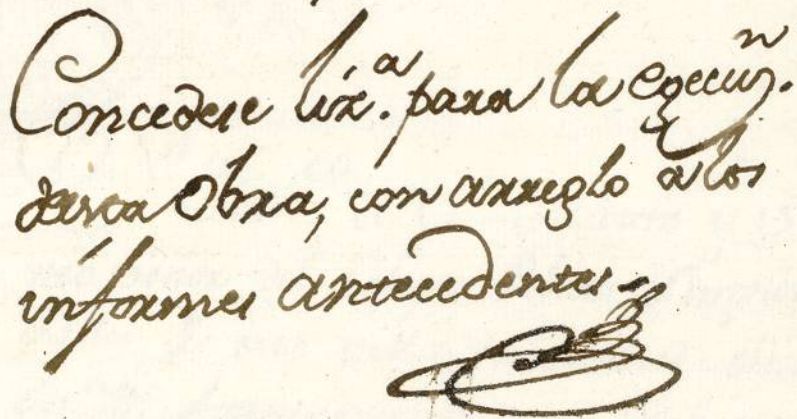 Concedese liz.ª para la egecuᵒⁿ.
desta Obra, con arreglo a los
informes antecedentes